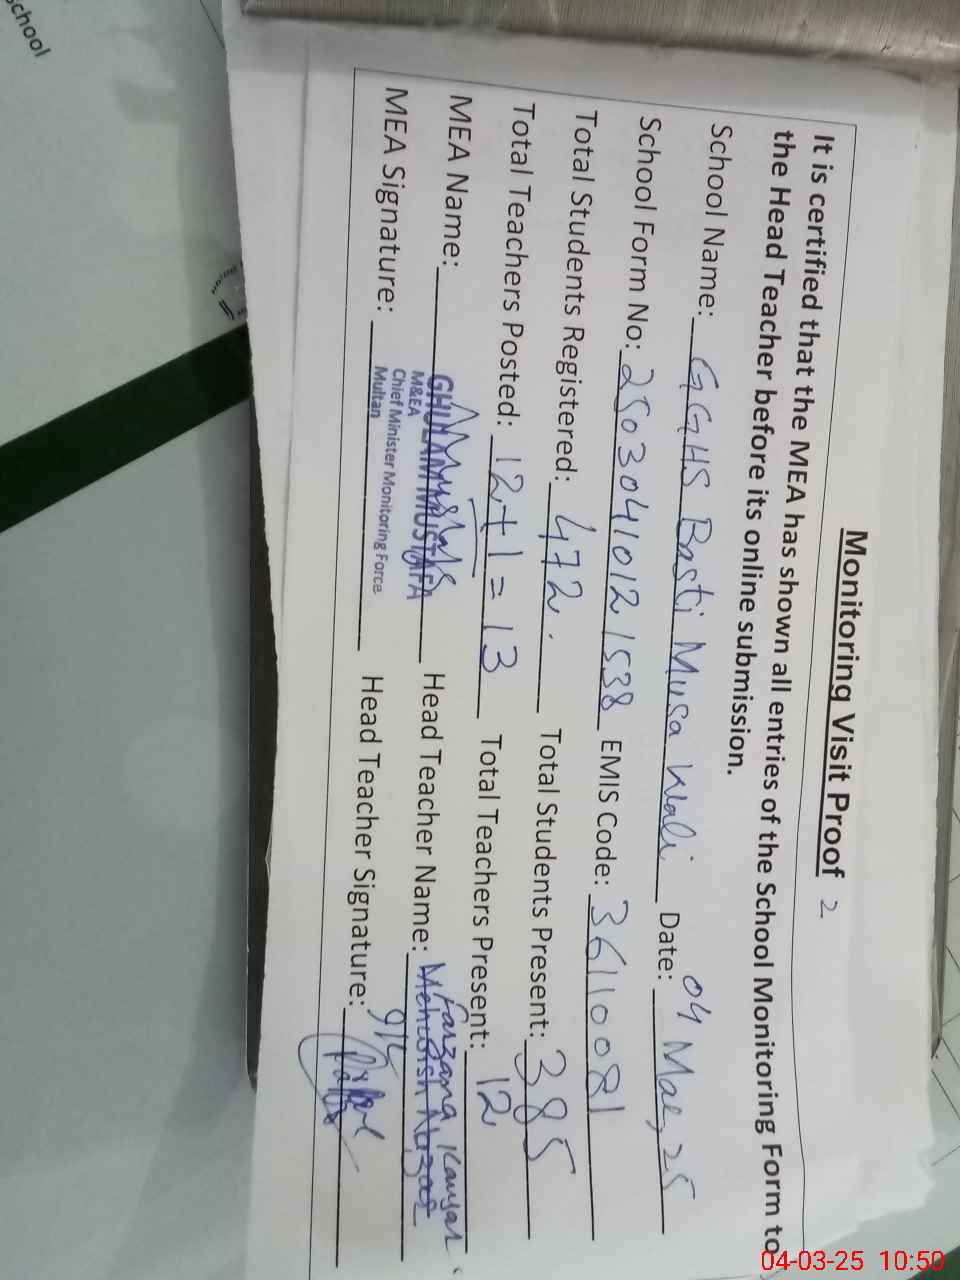 Monitoring Visit Proof 2
It is certified that the MEA has shown all entries of the School Monitoring Form to
the Head Teacher before its online submission.
School Name: GGHS Basti Musa Wali Date: 04 Mar, 25
School Form No: 25030410121538 EMIS Code: 36110081
Total Students Registered: 472. Total Students Present: 385
Total Teachers Posted: 12+1=13 Total Teachers Present: 12
MEA Name: GHULAM MUSTAFA Head Teacher Name: Mehwish Nazar Farzana Kausar
M&EA
Chief Minister Monitoring Force
Multan
MEA Signature: Head Teacher Signature:
School
04-03-25 10:50